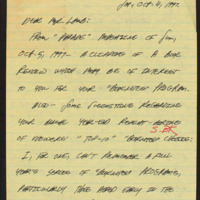 Sat., Oct. 4, 1997.
Dear Mr. Lamb:
From "Parade" Magazine of Sun,
Oct. 5, 1997 - a clipping of a book
review which may be of interest
to you for your "Booknotes" program.
Also - some suggestions regarding
your annual year-end
of viewers' "Top-10" "Booknotes" choices:
I, for one, can't remember a full
year's series of "Booknotes" programs,
particularly those aired early in the